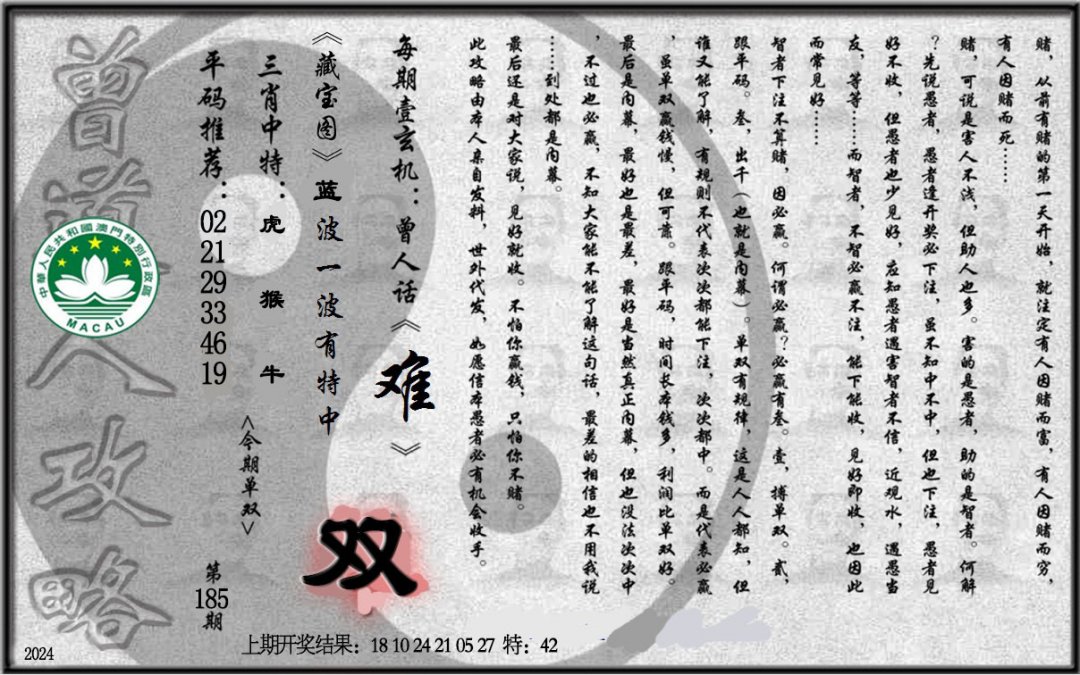 赌，从前有赌的第一天开始，就注定有人因赌而富，有人因赌而穷，
有人因赌而死……
赌，可说是害人不浅，但助人也多。害的是愚者，助的是智者。何解
？先说愚者，愚者逢开奖必下注，虽不知中不中，但也下注，愚者见
好不收，但愚者也少见好，应知愚者遇害智者不信，近观水，遇愚当
友，等等……而智者，不智必赢不注，能下能收，见好即收，也因此
而常见好……
智者下注不算赌，因必赢。何谓必赢？必赢有叁。壹，搏单双。贰，
跟平码。叁，出千（也就是内幕）。单双有规律，这是人人都知，但
谁又能了解，有规则不代表次次都能下注，次次都中。而是代表必赢
，虽单双赢钱慢，但可靠。跟平码，时间长本钱多，利润比单双好。
最后是内幕，最好也是最差，最好是当然真正内幕，但也没法次次中
，不过也必赢，不知大家能不能了解这句话，最差的相信也不用我说
……到处都是内幕。
最后还是对大家说，见好就收。不怕你赢钱，只怕你不赌。
此攻略由本人亲自发料，世外代发，如愿信本愚者必有机会收手。
每期壹玄机：曾人话《难》
《藏宝图》蓝波一波有特中
三肖中特：虎 猴 牛
<今期单双>
双
平码推荐：02 21 29 33 46 19
第185期
曾道人攻略
中華人民共和國澳門特別行政區
MACAU
上期开奖结果：18 10 24 21 05 27 特：42
2024